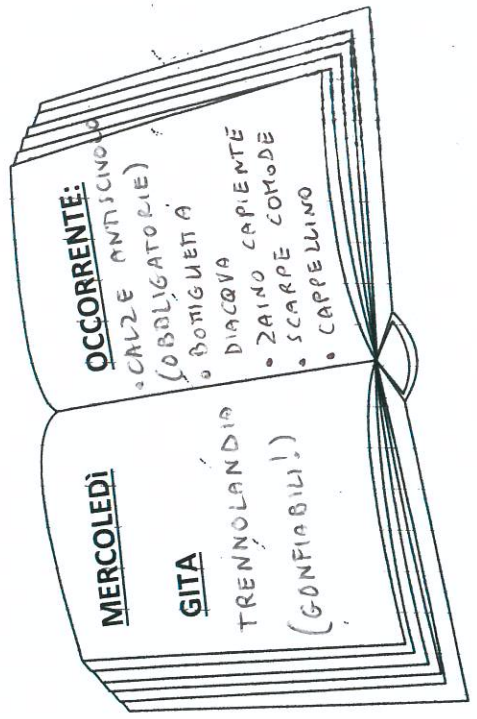 MERCOLEDÌ
GITA
TRENNOLANDIA
(GONFIABILI!)
OCCORRENTE:
• CALZE ANTISCIVOLO
(OBBLIGATORIE)
• BOTTIGLIETTA
DIACQUA
• ZAINO CAPIENTE
• SCARPE COMODE
• CAPPELLINO